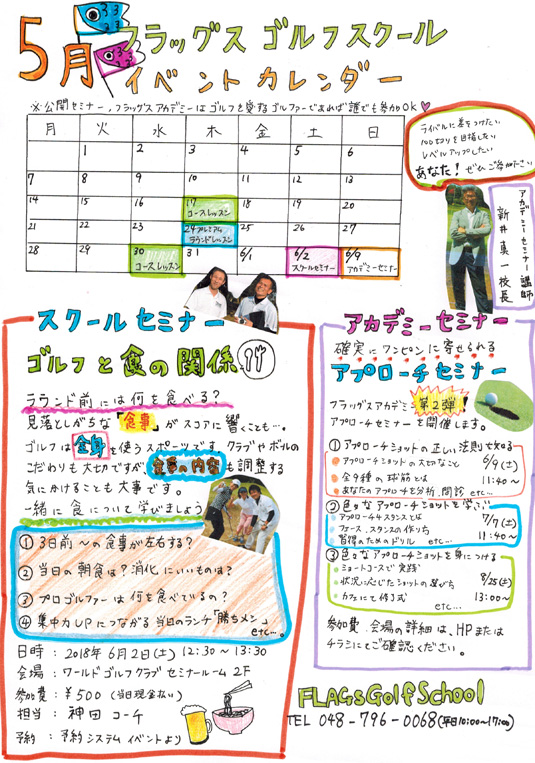 5月 フラッグス ゴルフスクール
イベント カレンダー
※公開セミナー、フラッグスアカデミーはゴルフを愛するゴルファーであれば誰でも参加OK♥
月 火 水 木 金 土 日
1 2 3 4 5 6
7 8 9 10 11 12 13
14 15 16 17 18 19 20
コースレッスン
21 22 23 24 25 26 27
プレミアム
ラウンドレッスン
28 29 30 31 6/1 6/2 6/9
コースレッスン スクールセミナー アカデミーセミナー
ライバルに差をつけたい
100切りを目指したい
レベルアップしたい
あなた！ぜひご参加ください
アカデミーセミナー講師
新井 真一 校長
スクール セミナー
ゴルフと食の関係
ラウンド前には何を食べる？
見落としがちな「食事」がスコアに響くことも…。
ゴルフは全身を使うスポーツです。クラブやボールの
こだわりも大切ですが食事の内容も調整する
気にかけることも大事です。
一緒に食について学びましょう
① 3日前〜の食事が左右する？
② 当日の朝食は？消化にいいものは？
③ プロゴルファーは何を食べているの？
④ 集中力UPにつながる当日のランチ「勝ちメン」
etc…。
日時：2018年6月2日(土) 12:30〜13:30
会場：ワールドゴルフクラブ セミナールーム 2F
参加費：¥500（当日現金払い）
担当：神田 コーチ
予約：予約システム イベントより
アカデミーセミナー
確実にワンピンに寄せられる
アプローチセミナー
フラッグスアカデミー 第2弾
アプローチセミナーを開催します。
① アプローチショットの正しい法則を知る
アプローチショットの大切なこと
全9種の球筋とは
あなたのアプローチを分析、問診 etc…
6/9(土)
11:40〜
② 色々なアプローチショットを学ぶ
アプローチ4スタンスとは
フェース、スタンスの作り方
習得のためのドリル etc…
7/7(土)
11:40〜
③ 色々なアプローチショットを身につける
ショートコースで実践
状況に応じたショットの選び方
カフェにて修了式
etc…
8/25(土)
13:00〜
参加費、会場の詳細は、HPまたは
チラシにてご確認ください。
FLAGs Golf School
TEL 048-796-0068(平日10:00〜17:00)